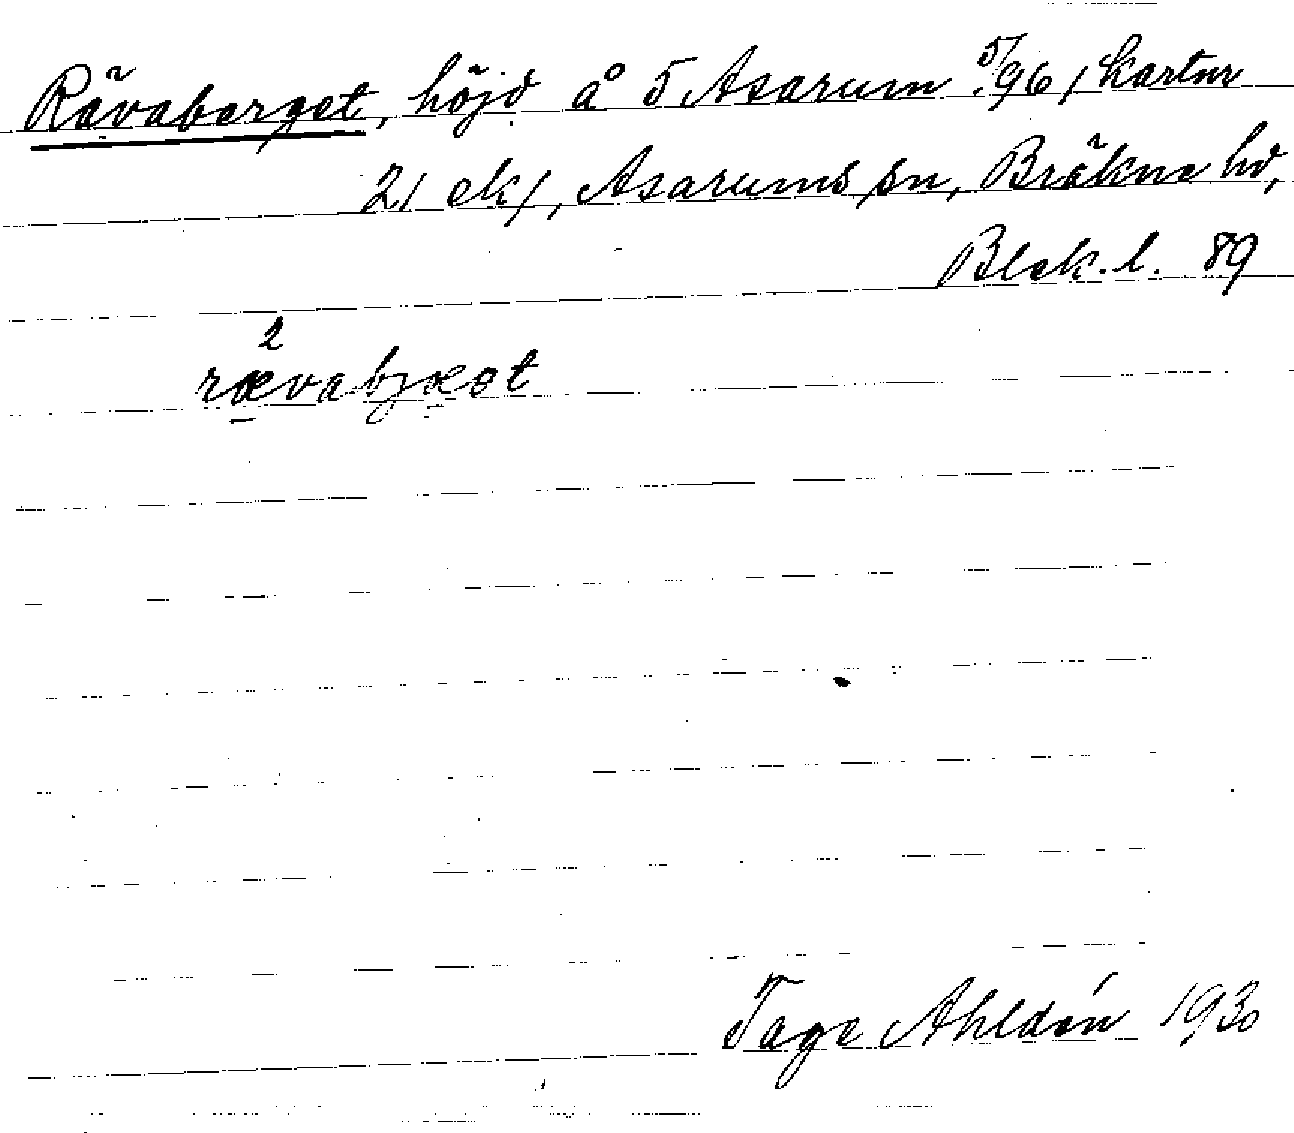 Rävaberget, höjd å 5 Asarum 5/96, kartnr
21 ek/, Asarums sn, Bräkne hd,
Blek. l. 89
2
rævabjæst
Tage Ahldén 1930